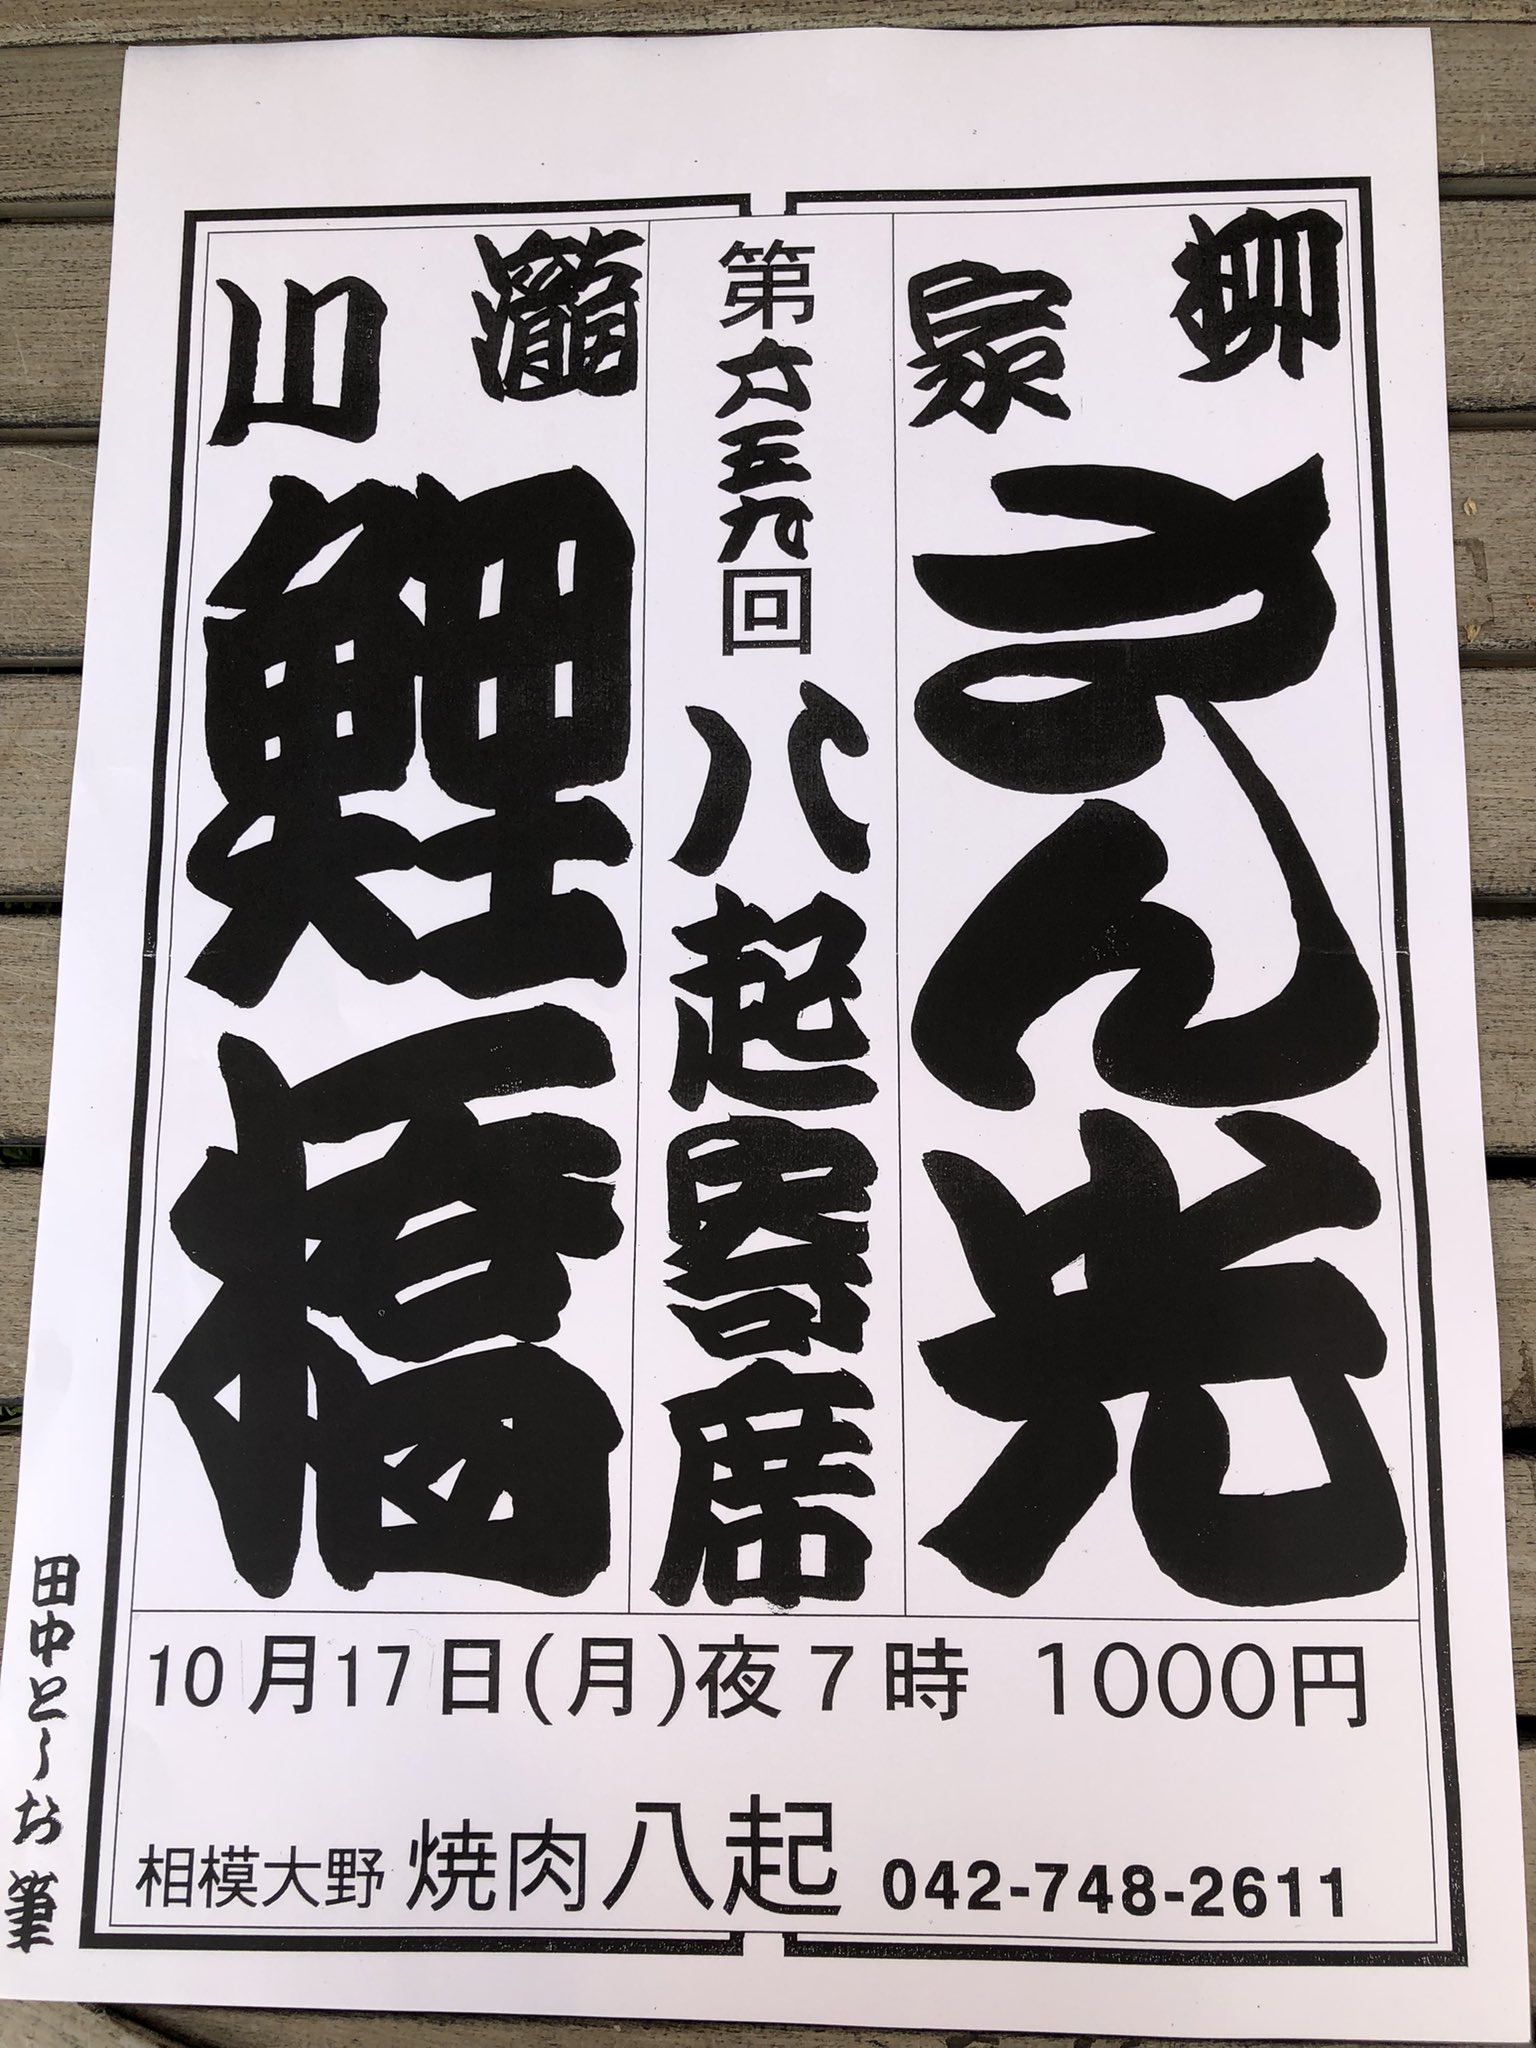 柳家さん光
第六五九回 八起寄席
瀧川鯉橋
10月17日(月)夜7時 1000円
相模大野 焼肉八起 042-748-2611
田中とーお 筆